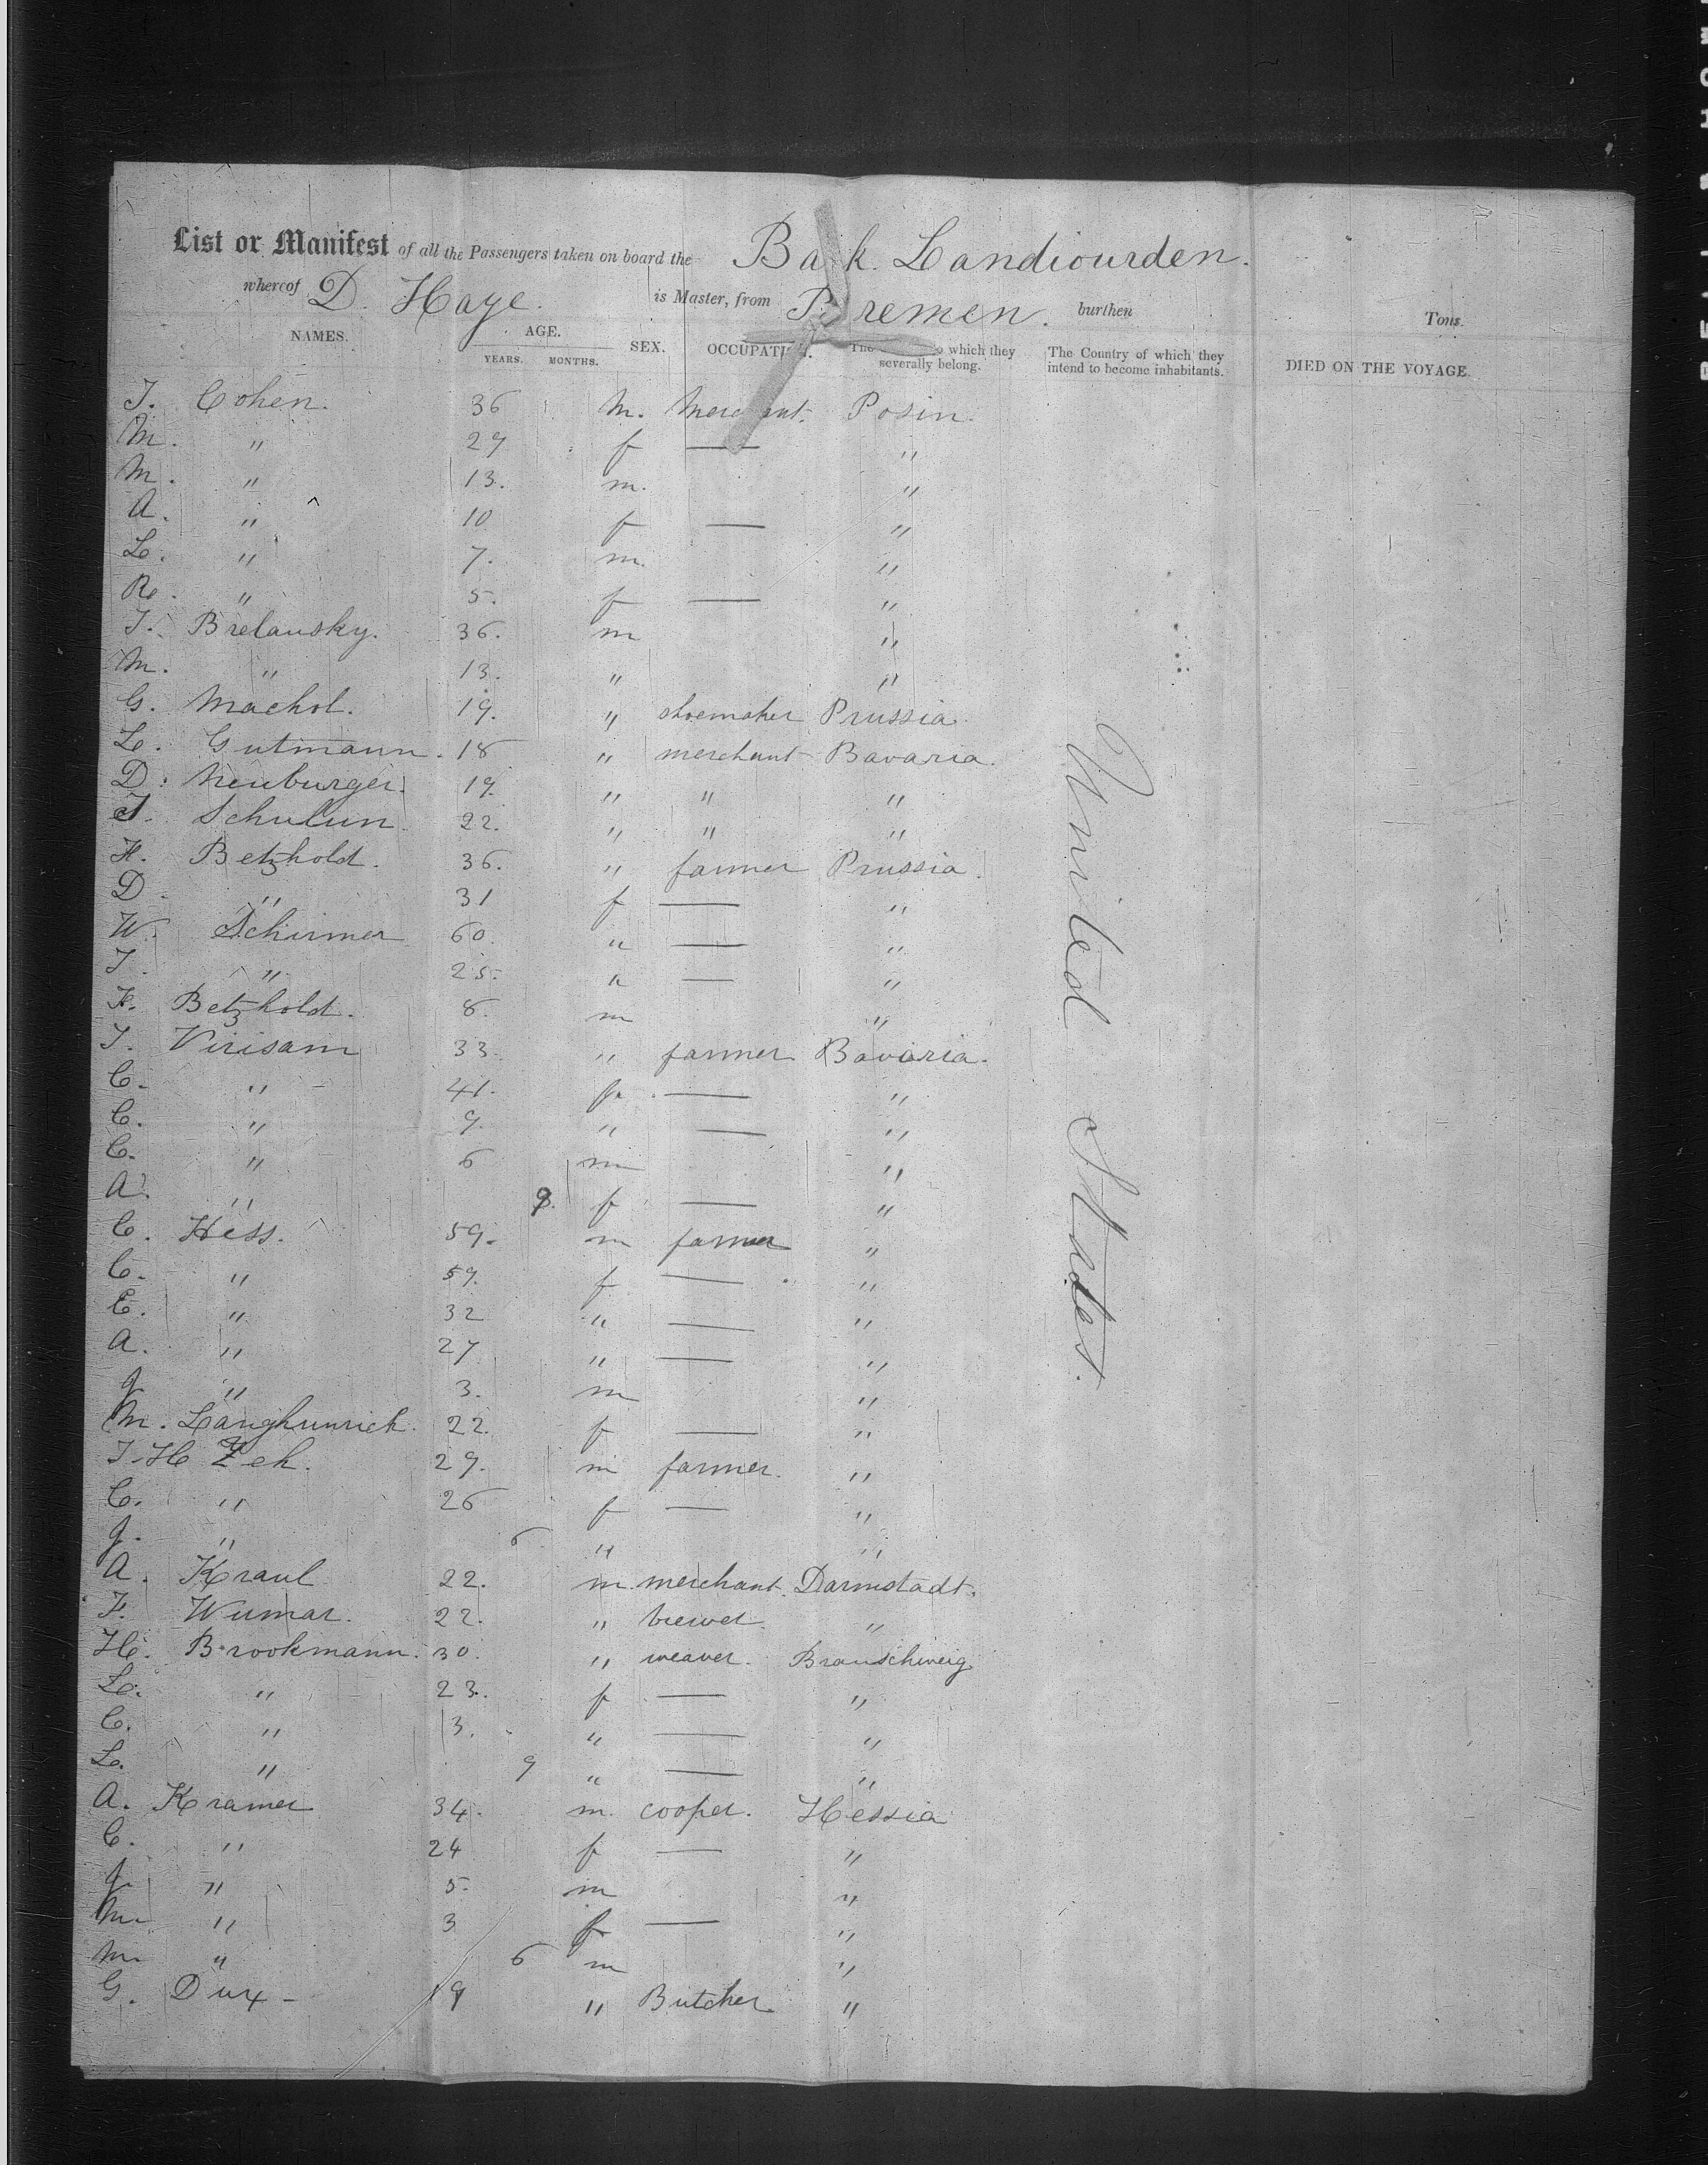 List or Manifest of all the Passengers taken on board the Bark. Landiourden.
whereof D. Haye. is Master, from Bremen. burthen Tons.
NAMES. AGE. YEARS. MONTHS. SEX. OCCUPATION. The to which they severally belong. The Country of which they intend to become inhabitants. DIED ON THE VOYAGE.
J. Cohen. 36 m. Merchant. Posin.
M. " 29 f — "
M. " 13. m. "
A. " 10 f — "
L. " 7. m. "
R. " 5. f — "
J. Brelausky. 36. m "
M. " 13. " "
G. Machol. 19. " shoemaker Prussia.
L. Gutmann. 18 " merchant Bavaria.
D. Neuburger. 19. " " "
J. Schulun. 22. " " "
H. Betzhold. 36. " farmer Prussia.
D. " 31 f — "
W. Schirmer 60. " — "
J. " 25. " — "
H. Betzhold. 8. m "
J. Virisam 33. " farmer Bavaria.
C. " 41. f. — "
C. " 9. " — "
C. " 6 m "
A. " 9. f — "
C. Hess. 59. m farmer "
C. " 59. f — "
E. " 32 " — "
A. " 27 " — "
J. " 3. m "
M. Langhunrich. 22. f — "
J. H Zeh. 29. m farmer. "
C. " 26 f — "
J. " 6. " "
A. Kraul 22. m. merchant. Darmstadt.
F. Wumar. 22. " brewer. "
H. Brookmann. 30. " weaver. Branschweig
L. " 23. f — "
C. " 3. " — "
L. " 9 " — "
A. Kramer 34. m. cooper. Hessia
C. " 24 f — "
J. " 5. m "
M. " 3 f — "
M. " 6 m "
G. Dux - 19 " Butcher. "
United States.